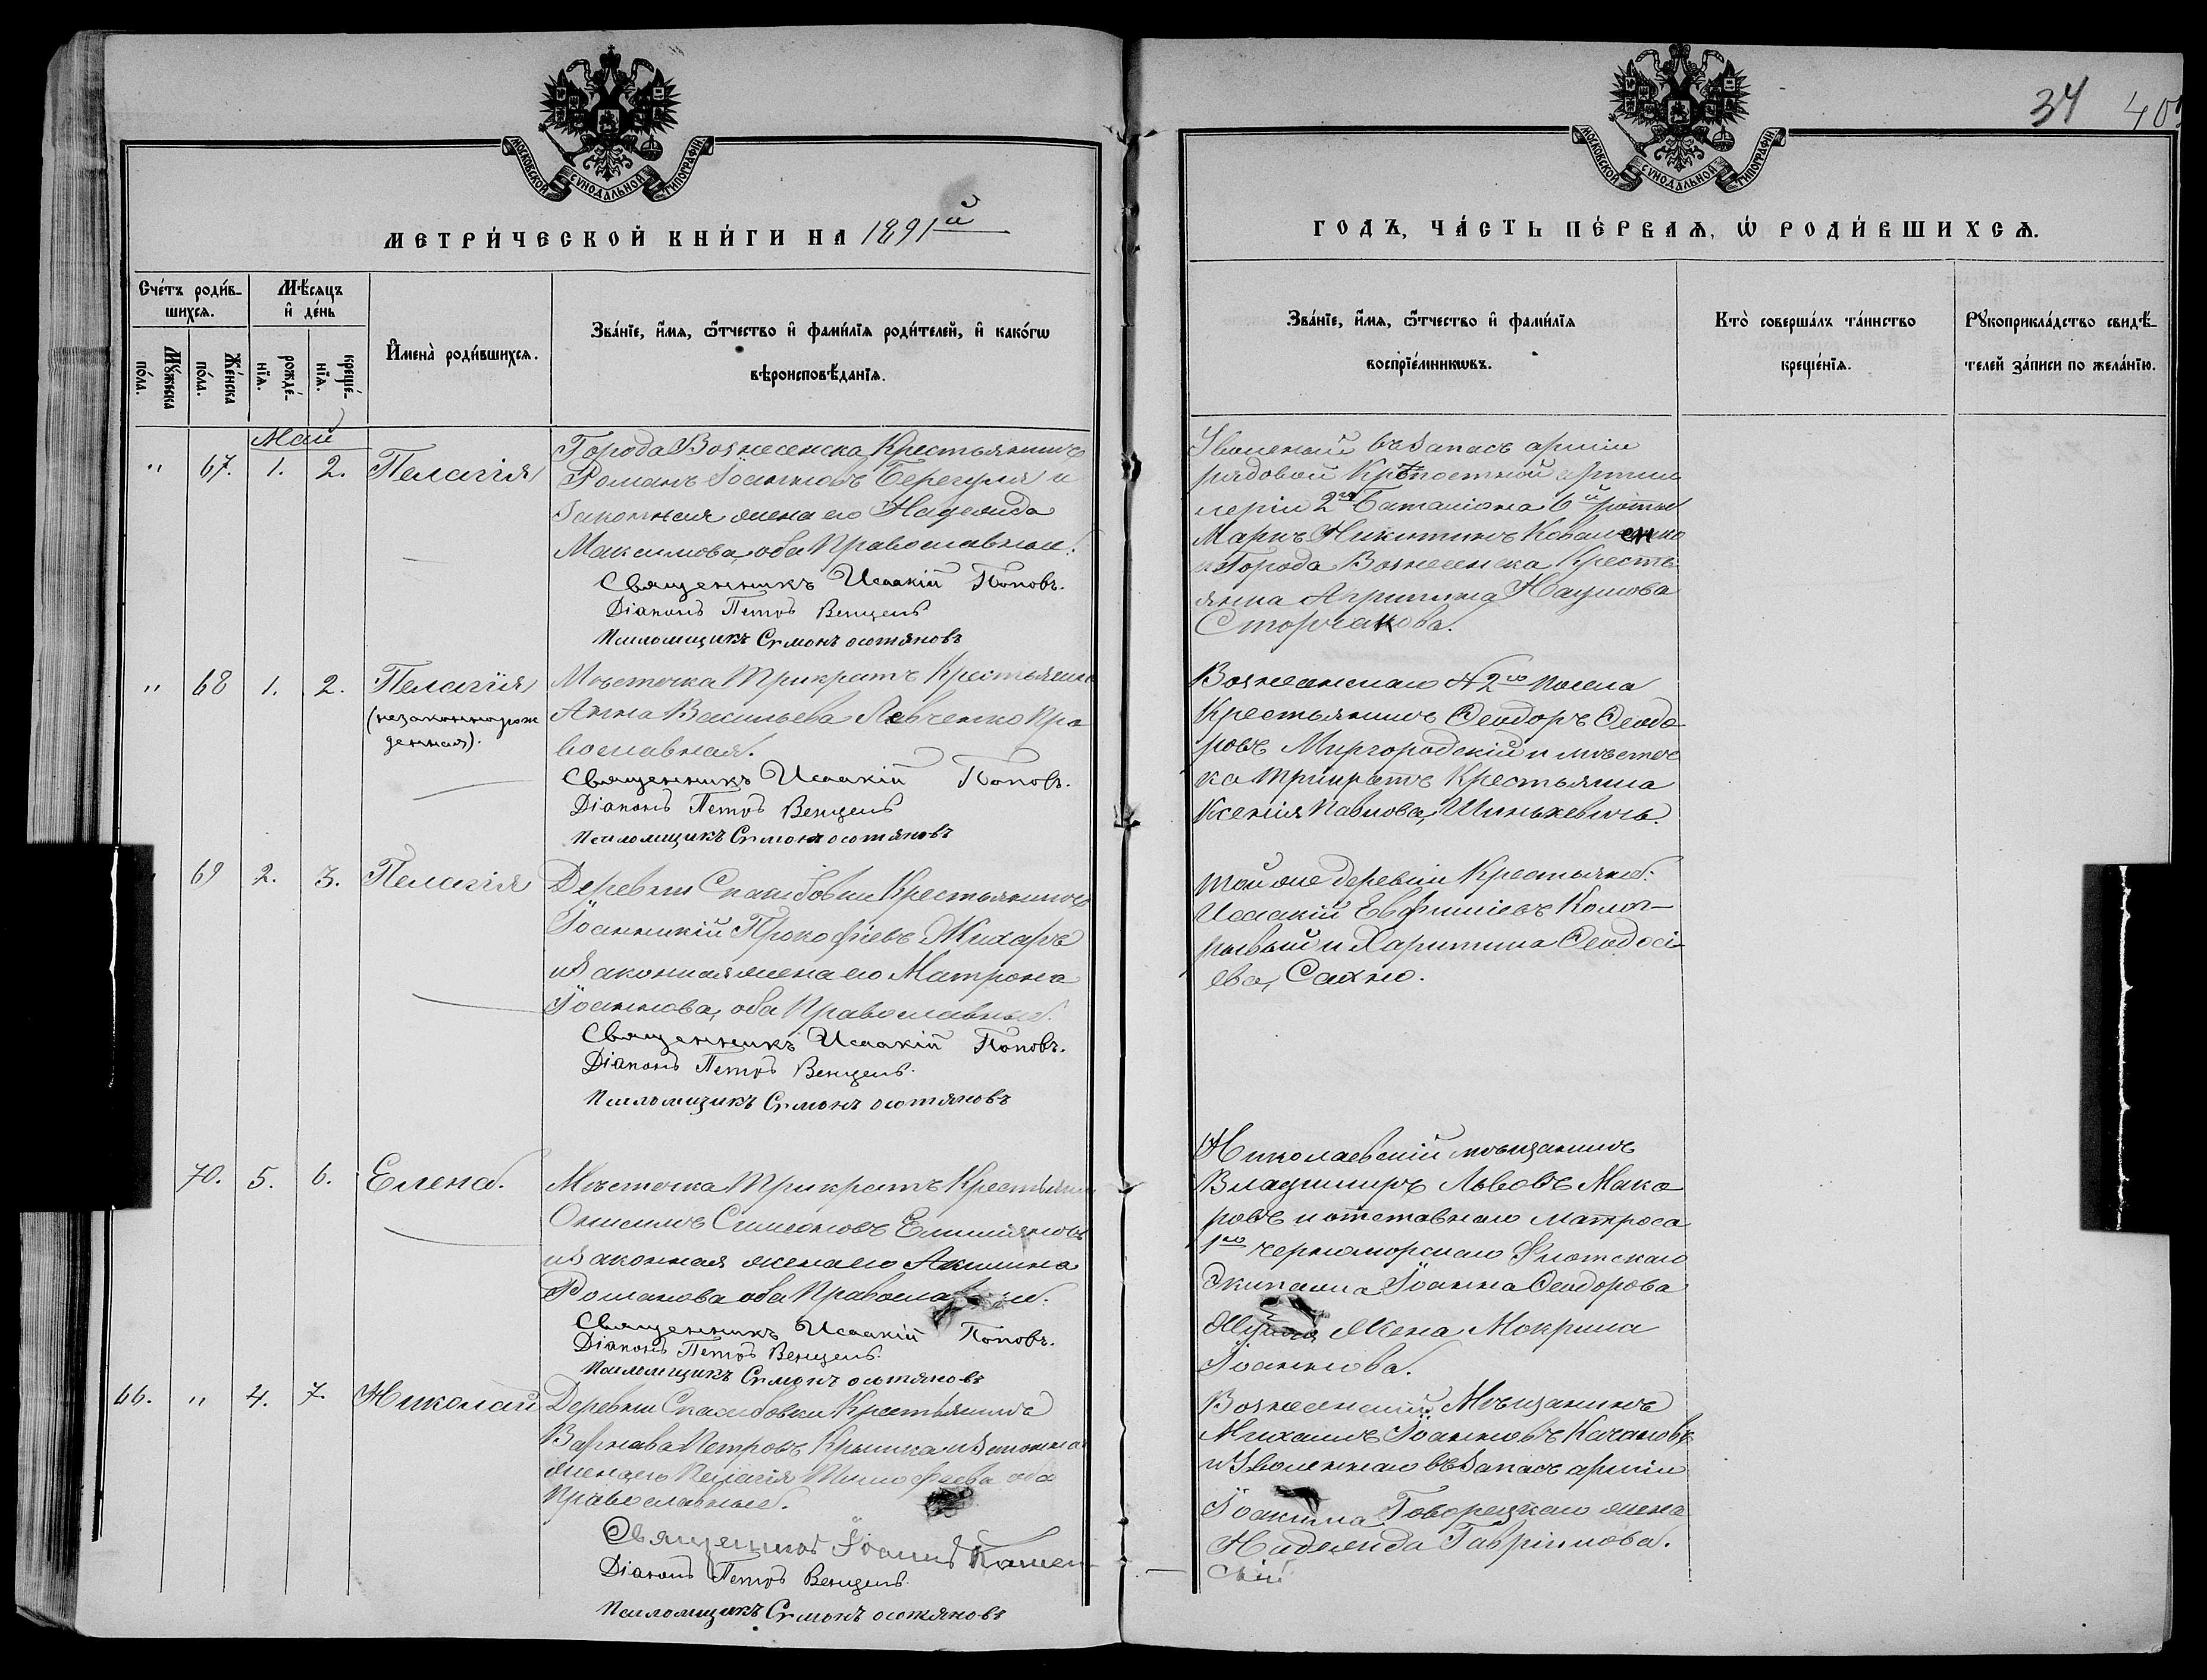 МОСКОВСКОЙ СѴНОДАЛЬНОЙ ТИПОГРАФІИ.
МЕТРИ́ЧЕСКОЙ КНИ́ГИ НА 1891й
Сче́тъ роди́в-
шихсѧ.
Мѣ́сѧцъ
и҆ де́нь
Мꙋ́жеска
по́ла.
Же́нска
по́ла.
рожде́-
нїѧ.
креще́-
нїѧ.
И҆мена̀ роди́вшихсѧ.
Зва́нїе, и҆́мѧ, ѻ҆́тчество и҆ фами́лїѧ роди́телей, и҆ како́гѡ
вѣроисповѣ́данїѧ.
Май
" 67. 1. 2. Пелагія
Города Вознесенска Крестьянинъ
Романъ Іоанновъ Берегуля и
законная жена его Надежда
Максимова, оба Православные.
Священникъ Исаакій Поповъ.
Діаконъ Петръ Венцель
Псаломщикъ Сѵмонъ
" 68 1. 2. Пелагія
(незаконнорож
денная).
Мѣстечка Трикратъ Крестьянка
Анна Васильева Левченко Пра
вославная.
Священникъ Исаакій Поповъ.
Діаконъ Петръ Венцель
Псаломщикъ Сѵмонъ
69 2. 3. Пелагія
Деревни Скаржовки Крестьянинъ
Іоанникій Прокофіевъ Жихарь
и законная жена его Матрона
Іоаннова, оба Православные.
Священникъ Исаакій Поповъ.
Діаконъ Петръ Венцель.
Псаломщикъ Сѵмонъ
70. 5. 6. Елена.
Мѣстечка Трикратъ Крестьянин
Онисимъ Симеоновъ
и законная жена его Акилина
Романова оба Православные.
Священникъ Исаакій Поповъ.
Діаконъ Петръ Венцель.
Псаломщикъ Сѵмонъ
66. " 4. 7. Николай
Деревни Крестьянинъ
Варнава Петровъ и законная
жена его Пелагія Тимофеева оба
Православные.
Священникъ Іоаннъ Камен-
Діаконъ Петръ Венцель.
Псаломщикъ Сѵмонъ
34 40
МОСКОВСКОЙ СѴНОДАЛЬНОЙ ТИПОГРАФІИ.
ГОДЪ, ЧА́СТЬ ПЕ́РВАѦ, Ѡ҆ РОДИ́ВШИХСѦ.
Зва́нїе, и҆́мѧ, ѻ҆́тчество и҆ фами́лїѧ
воспрїе́мникѡвъ.
Кто̀ соверша́лъ та́инство
креще́нїѧ.
Рꙋкоприкла́дство свидѣ́-
телей за́писи по жела́нїю.
Уволеный въ запасъ арміи
рядовой Крѣпостной артил
леріи 2го Баталіона 6й роты
Маркъ Никитинъ Коваленко
и Города Вознесенска Кресть
янка Агрипина Наумова
Сторчакова.
Вознесенскаго № 2го посела
Крестьянинъ Ѳеодоръ Ѳеодо
ровъ Миргородскій и мѣстеч
ка Трикратъ Крестьянка
Ксенія Павлова, Шинкевичъ.
Той же деревни Крестьяне:
Исаакій Евфиміевъ
и Харитина Ѳеодосі
ева, Сахно.
Николаевскій мѣщанинъ
Владимиръ Львовъ Мака
ровъ и отставнаго матроса
1го черноморскаго Флотскаго
Экипажа Іоанна Ѳеодорова
Жена Мокрина
Іоаннова.
Вознесенский Мѣщанинъ
Михаилъ Іоанновъ Качановъ
и Уволеннаго въ запасъ арміи
Іоакима Говорецкаго жена
Надежда Гавріилова.
скій